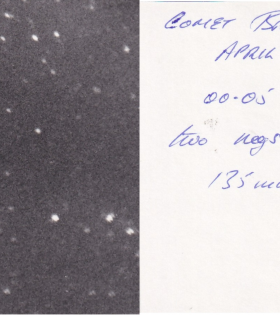 COMET
APRIL
00-05
two negs
135 mm